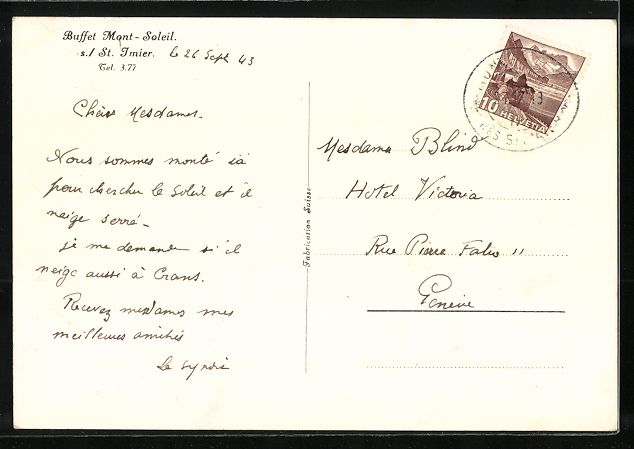 Buffet Mont-Soleil.
s./ St. Imier.
Tel. 3.77
Le 26 Sept 43
Chères Mesdames.
Nous sommes monté ici
pour chercher le Soleil et il
neige serré -
je me demande s'il
neige aussi à Crans.
Recevez mesdames mes
meilleures amitiés
Le Syndic
Fabrication Suisse
10 HELVETIA
Mesdames Blind
Hotel Victoria
Rue Pierre Fatio 11
Genève